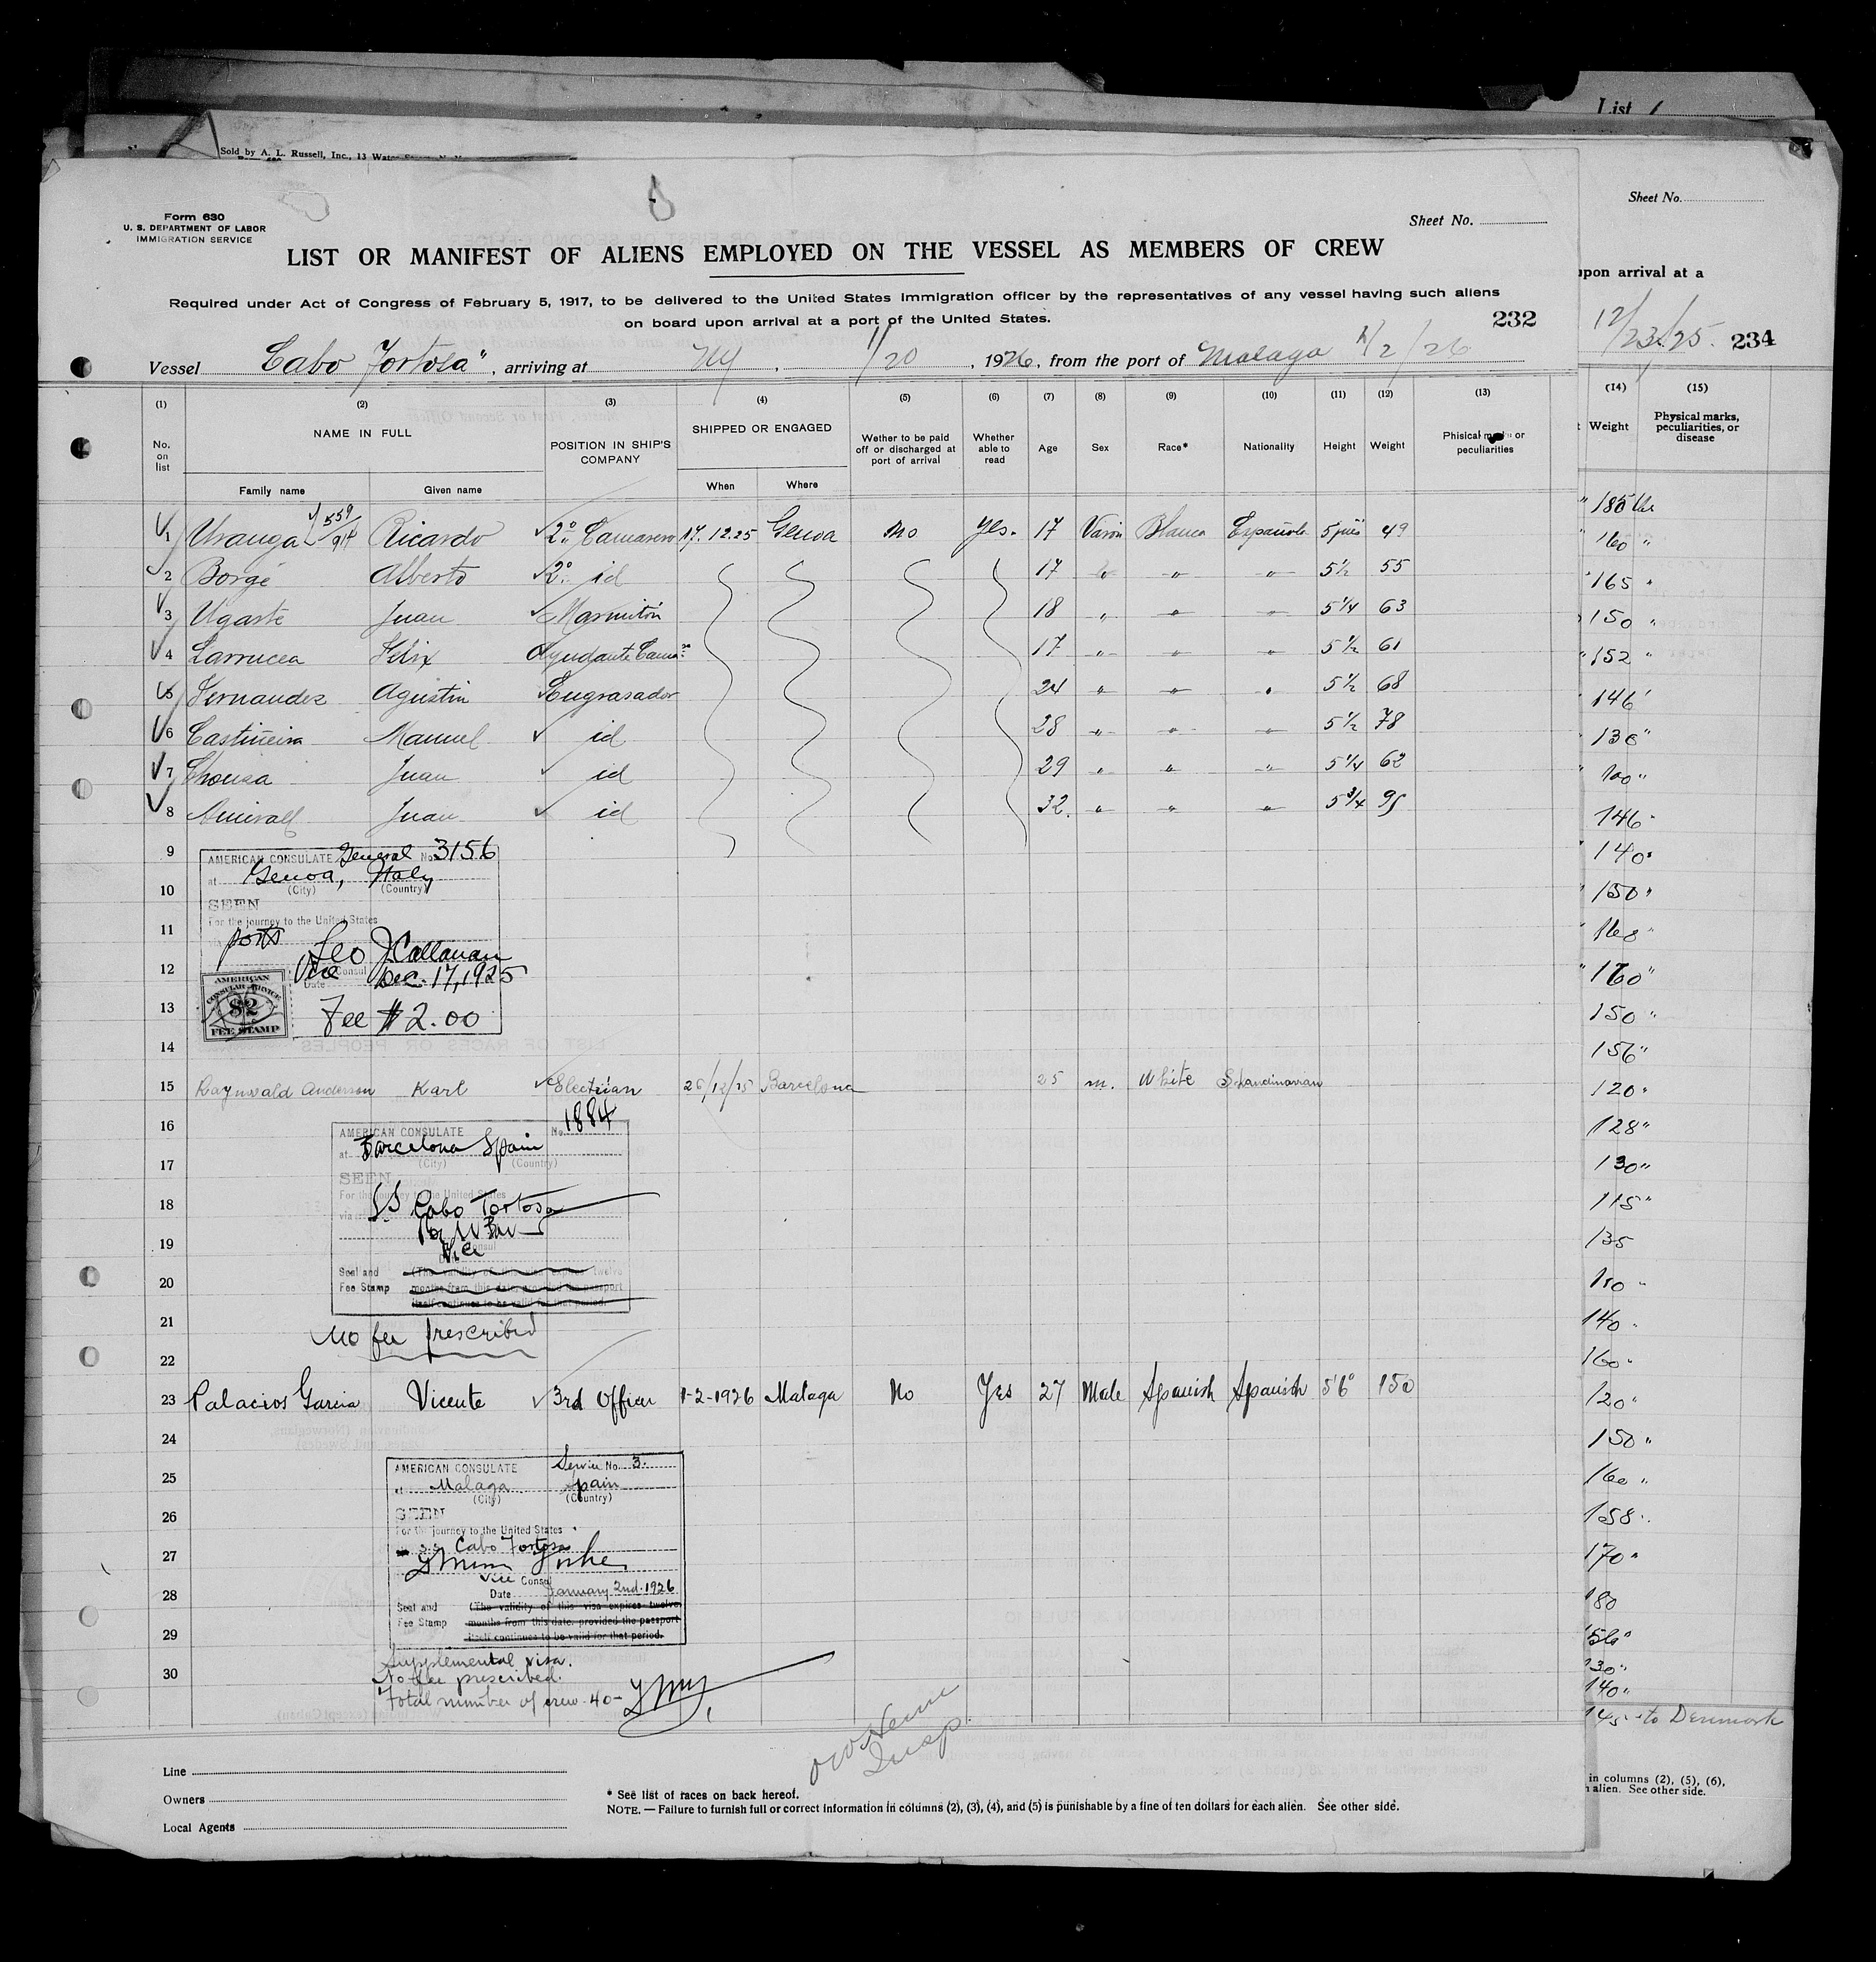 List 1
Sold by A. L. Russell, Inc., 13 Water
Sheet No.
Form 630
U. S. DEPARTMENT OF LABOR
IMMIGRATION SERVICE
Sheet No.
LIST OR MANIFEST OF ALIENS EMPLOYED ON THE VESSEL AS MEMBERS OF CREW
upon arrival at a
Required under Act of Congress of February 5, 1917, to be delivered to the United States Immigration officer by the representatives of any vessel having such aliens
on board upon arrival at a port of the United States.
232
12/23/25. 234
Vessel Cabo Tortosa", arriving at NY. 1/20, 1926, from the port of Malaga 1/2/26
(1) (2) (3) (4) (5) (6) (7) (8) (9) (10) (11) (12) (13) (14) (15)
No. on list NAME IN FULL POSITION IN SHIP'S COMPANY SHIPPED OR ENGAGED Wether to be paid off or discharged at port of arrival Whether able to read Age Sex Race* Nationality Height Weight Phisical marks or peculiarities Weight Physical marks, peculiarities, or disease
Family name Given name When Where
1 Uranga 559/94 Ricardo 2º Camarero 17.12.25 Genoa No Yes. 17 Varón Blanca Española 5 pies 49
2 Borgé Alberto 2º id 17 " " " 5½ 55
3 Ugarte Juan Marmitón 18 " " " 5¼ 63
4 Larrucea Félix Ayudante Camº 17 " " " 5½ 61
5 Fernandez Agustin Engrasador 24 " " " 5½ 68
6 Castiñeira Manuel id 28 " " " 5½ 78
7 Chousa Juan id 29 " " " 5¼ 62
8 Juan id 32. " " " 5¾ 95
9
AMERICAN CONSULATE General No. 3156
at Genoa, Italy
(City) (Country)
10
SEEN
For the journey to the United States
11
via ports
Leo J. Callanan
12
Vice Consul
Date Dec. 17, 1925
AMERICAN
CONSULAR SERVICE
$2
FEE STAMP
13
Fee $2.00
14
15 Raynwald Anderson Karl Electrian 26/12/25 Barcelona 25 m. White Skandinavian
16
1884
AMERICAN CONSULATE No.
at Barcelona Spain
17
(City) (Country)
SEEN
For the journey to the United States
18
via SS Cabo Tortosa
19
Vice Consul
20
Seal and (The validity of this visa expires twelve
Fee Stamp months from this date, provided the passport
itself continues to be valid for that period.
21
No fee prescribed
22
23 Palacios Garcia Vicente 3rd Officer 1-2-1926 Malaga No Yes 27 Male Spanish Spanish 5'6" 150
24
AMERICAN CONSULATE Service No. 3.
25
at Malaga Spain
(City) (Country)
26
SEEN
For the journey to the United States
27
S.S. Cabo Tortosa
Vice Consul
28
Date January 2nd. 1926
Seal and (The validity of this visa expires twelve
Fee Stamp months from this date, provided the passport
29
itself continues to be valid for that period.
Supplemental visa.
30
No fee prescribed.
Total number of crew - 40 -
Insp
Line
Owners
Local Agents
* See list of races on back hereof.
NOTE. — Failure to furnish full or correct information in columns (2), (3), (4), and (5) is punishable by a fine of ten dollars for each alien. See other side.
185 lbs
160 "
165 "
150 "
152 "
146
130 "
146
140
150 "
168 "
160 "
150 "
156 "
120
128 "
130 "
115 "
135
140
160
120 "
150 "
160 "
158
170 "
180
140 "
145 to Denmark
in columns (2), (5), (6),
alien. See other side.